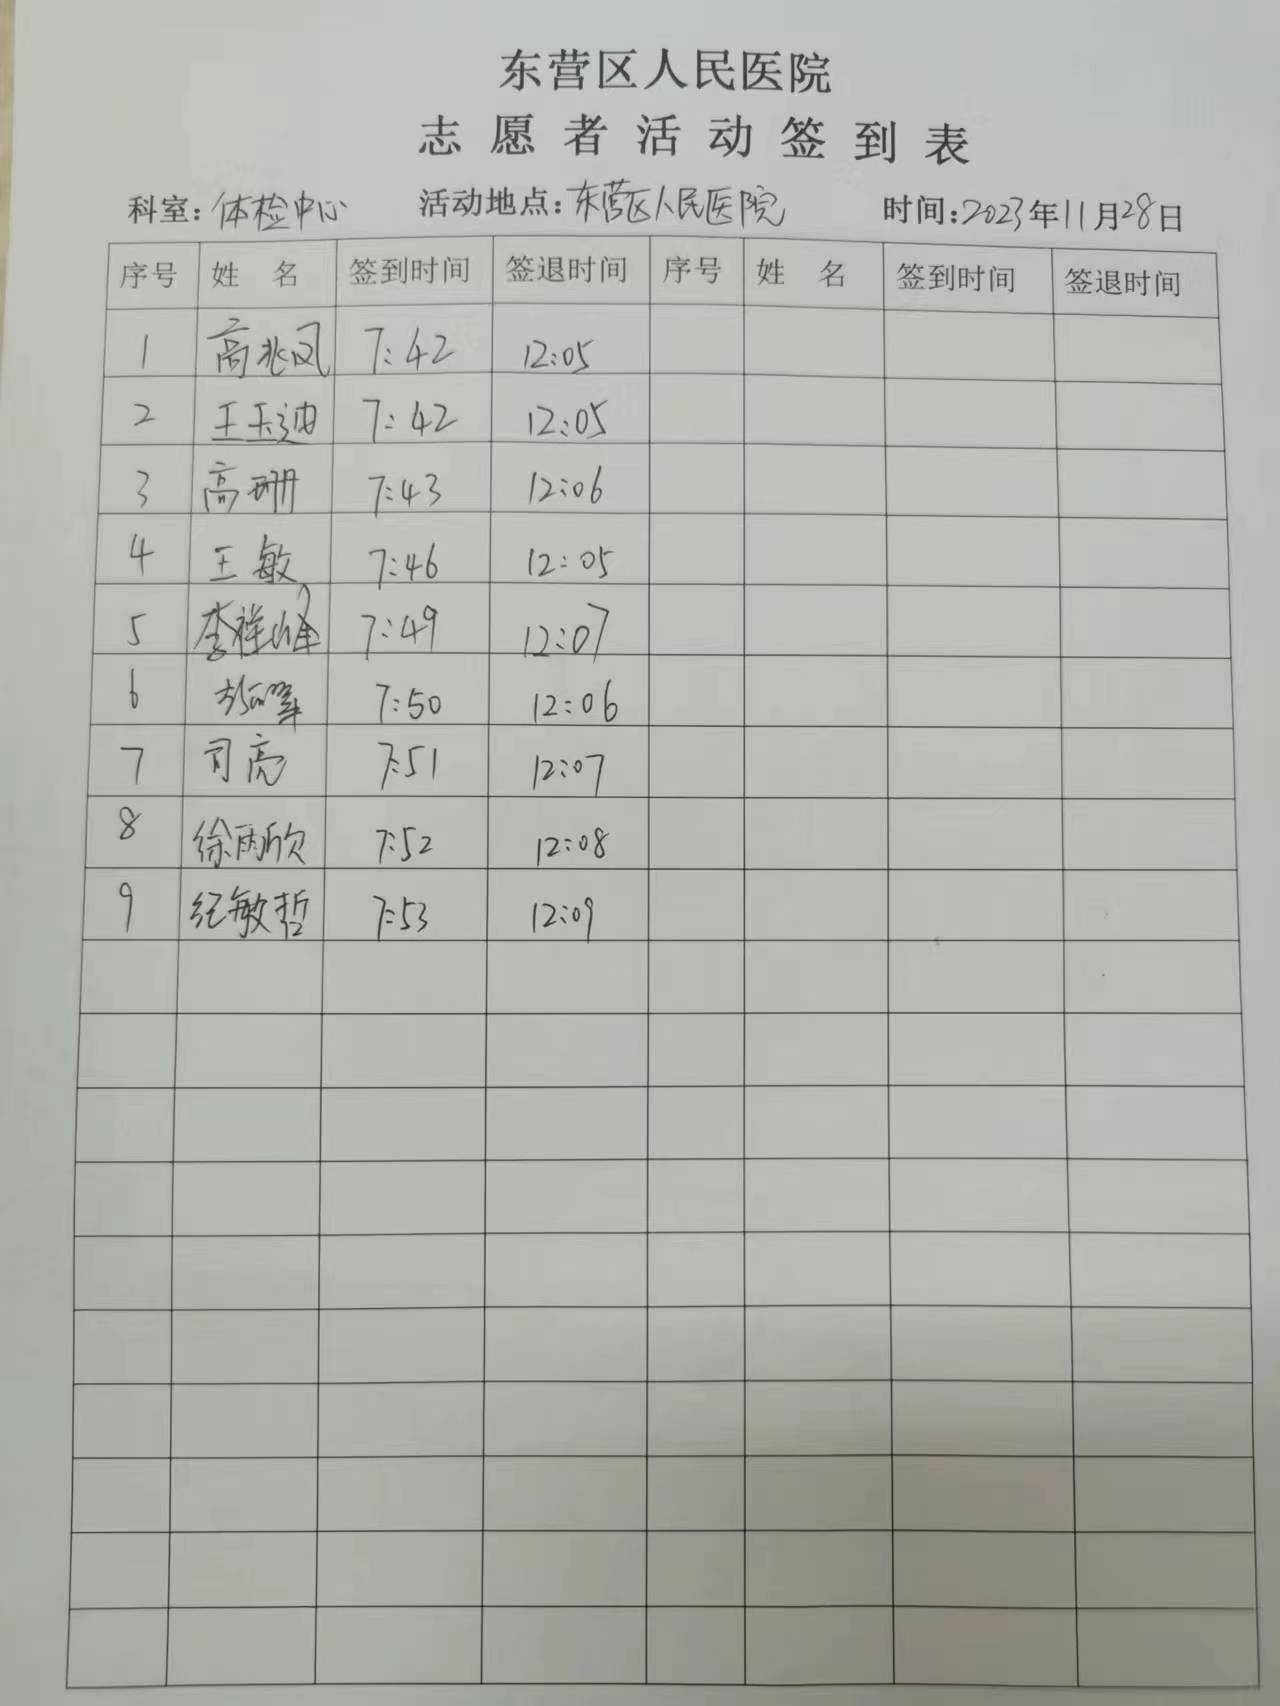 东营区人民医院
志愿者活动签到表
科室:体检中心 活动地点:东营区人民医院 时间:2023年11月28日
序号 姓 名 签到时间 签退时间 序号 姓 名 签到时间 签退时间
1 高兆凤 7:42 12:05
2 王玉迪 7:42 12:05
3 高珊 7:43 12:06
4 王敏 7:46 12:05
5 李祥峰 7:49 12:07
6 7:50 12:06
7 司亮 7:51 12:07
8 徐雨欣 7:52 12:08
9 纪敏哲 7:53 12:09